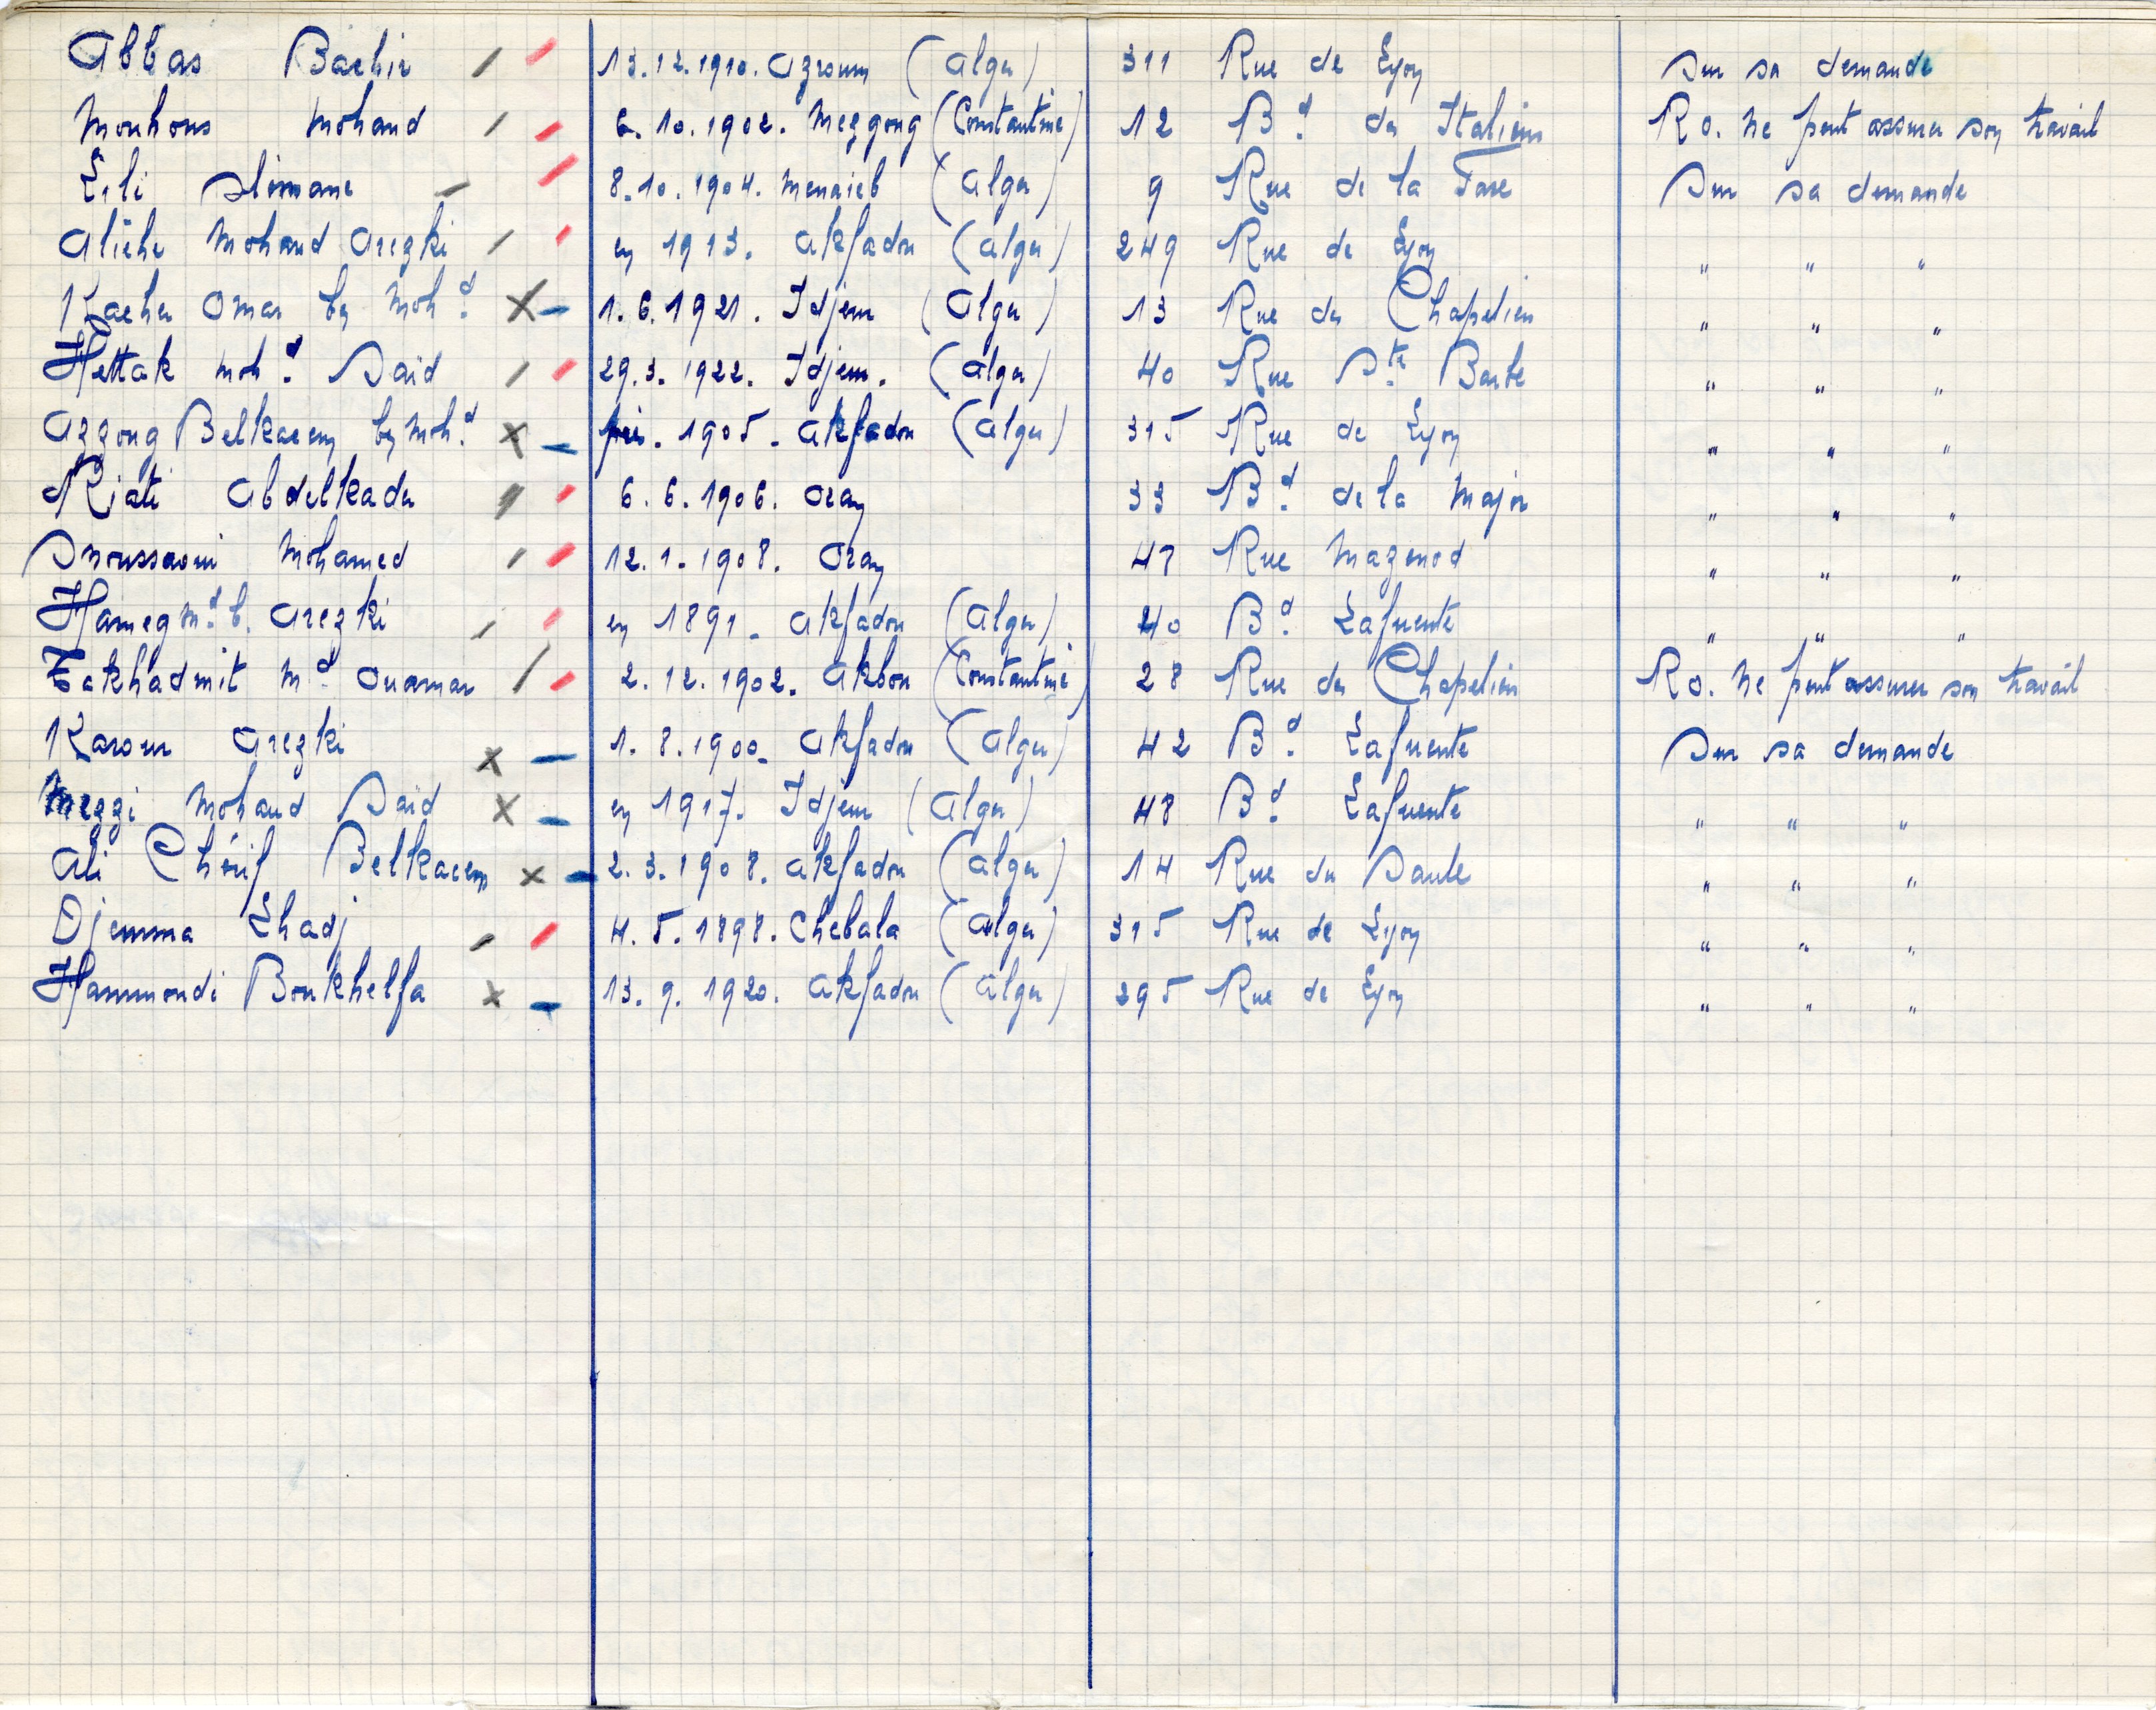 Abbas Bachir 13.12.1910. Azroum (Alger) 311 Rue de Lyon Sur sa demande
Mouhous Mohand 6.10.1902. Mezgoug (Constantine) 12 Bd. des Italiens Ro. Ne peut assurer son travail
Lili Slimane 8.10.1904. Menaieb (Alger) 9 Rue de la Fare Sur sa demande
Aliche Mohand Arezki en 1913. Akfadou (Alger) 249 Rue de Lyon " " "
Kacher Omar ben Mohd. 1.6.1921. Idjeur (Alger) 13 Rue des Chapeliers " " "
Hettak Mohd. Saïd 29.3.1922. Idjeur. (Alger) 40 Rue Ste Barbe " " "
Azzoug Belkacem ben Mohd. prés. 1905. Akfadou (Alger) 315 Rue de Lyon " " "
Kiati Abdelkader 6.6.1906. Oran 33 Bd. de la Major " " "
Snoussaoui Mohamed 12.1.1908. Oran 47 Rue Mazenod " " "
Hameg Md. b. Arezki en 1891. Akfadou (Alger) 40 Bd. Lafuente " " "
Takhadmit Md. Ouamar 2.12.1902. Akbou (Constantine) 28 Rue des Chapeliers Ro. Ne peut assurer son travail
Karoun Arezki 1.8.1900. Akfadou (Alger) 42 Bd. Lafuente Sur sa demande
Mezzi Mohand Saïd en 1917. Idjeur (Alger) 48 Bd. Lafuente " " "
Ali Chérif Belkacem 2.3.1908. Akfadou (Alger) 14 Rue du Saule " " "
Djemma Lhadj 4.5.1898. Chebala (Alger) 315 Rue de Lyon " " "
Hammoudi Boukhelfa 13.9.1920. Akfadou (Alger) 395 Rue de Lyon " " "